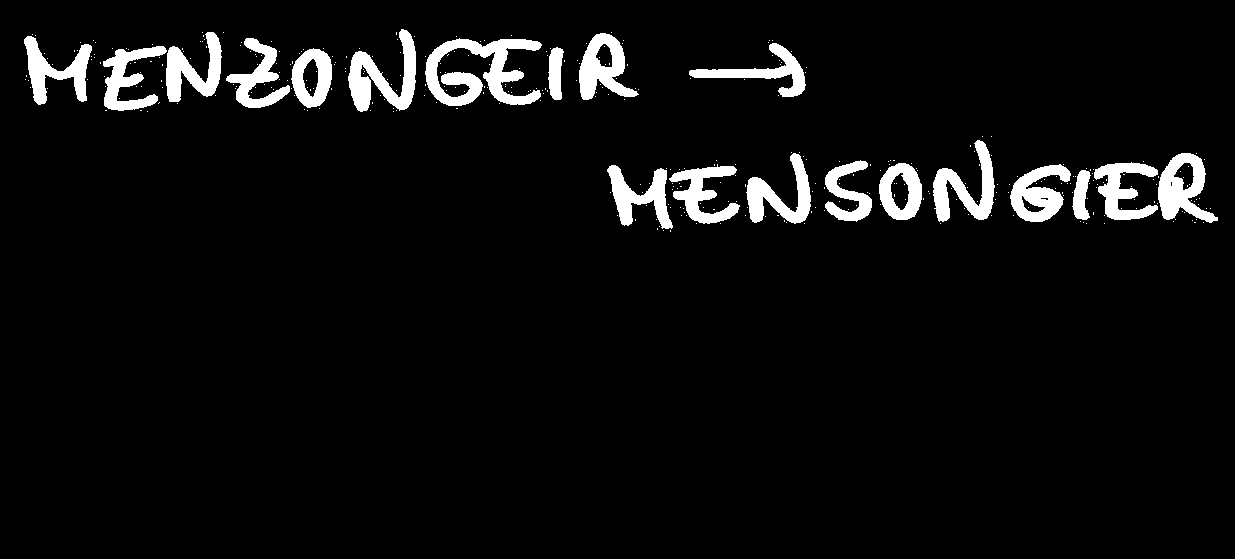 MENZONGEIR →
MENSONGIER